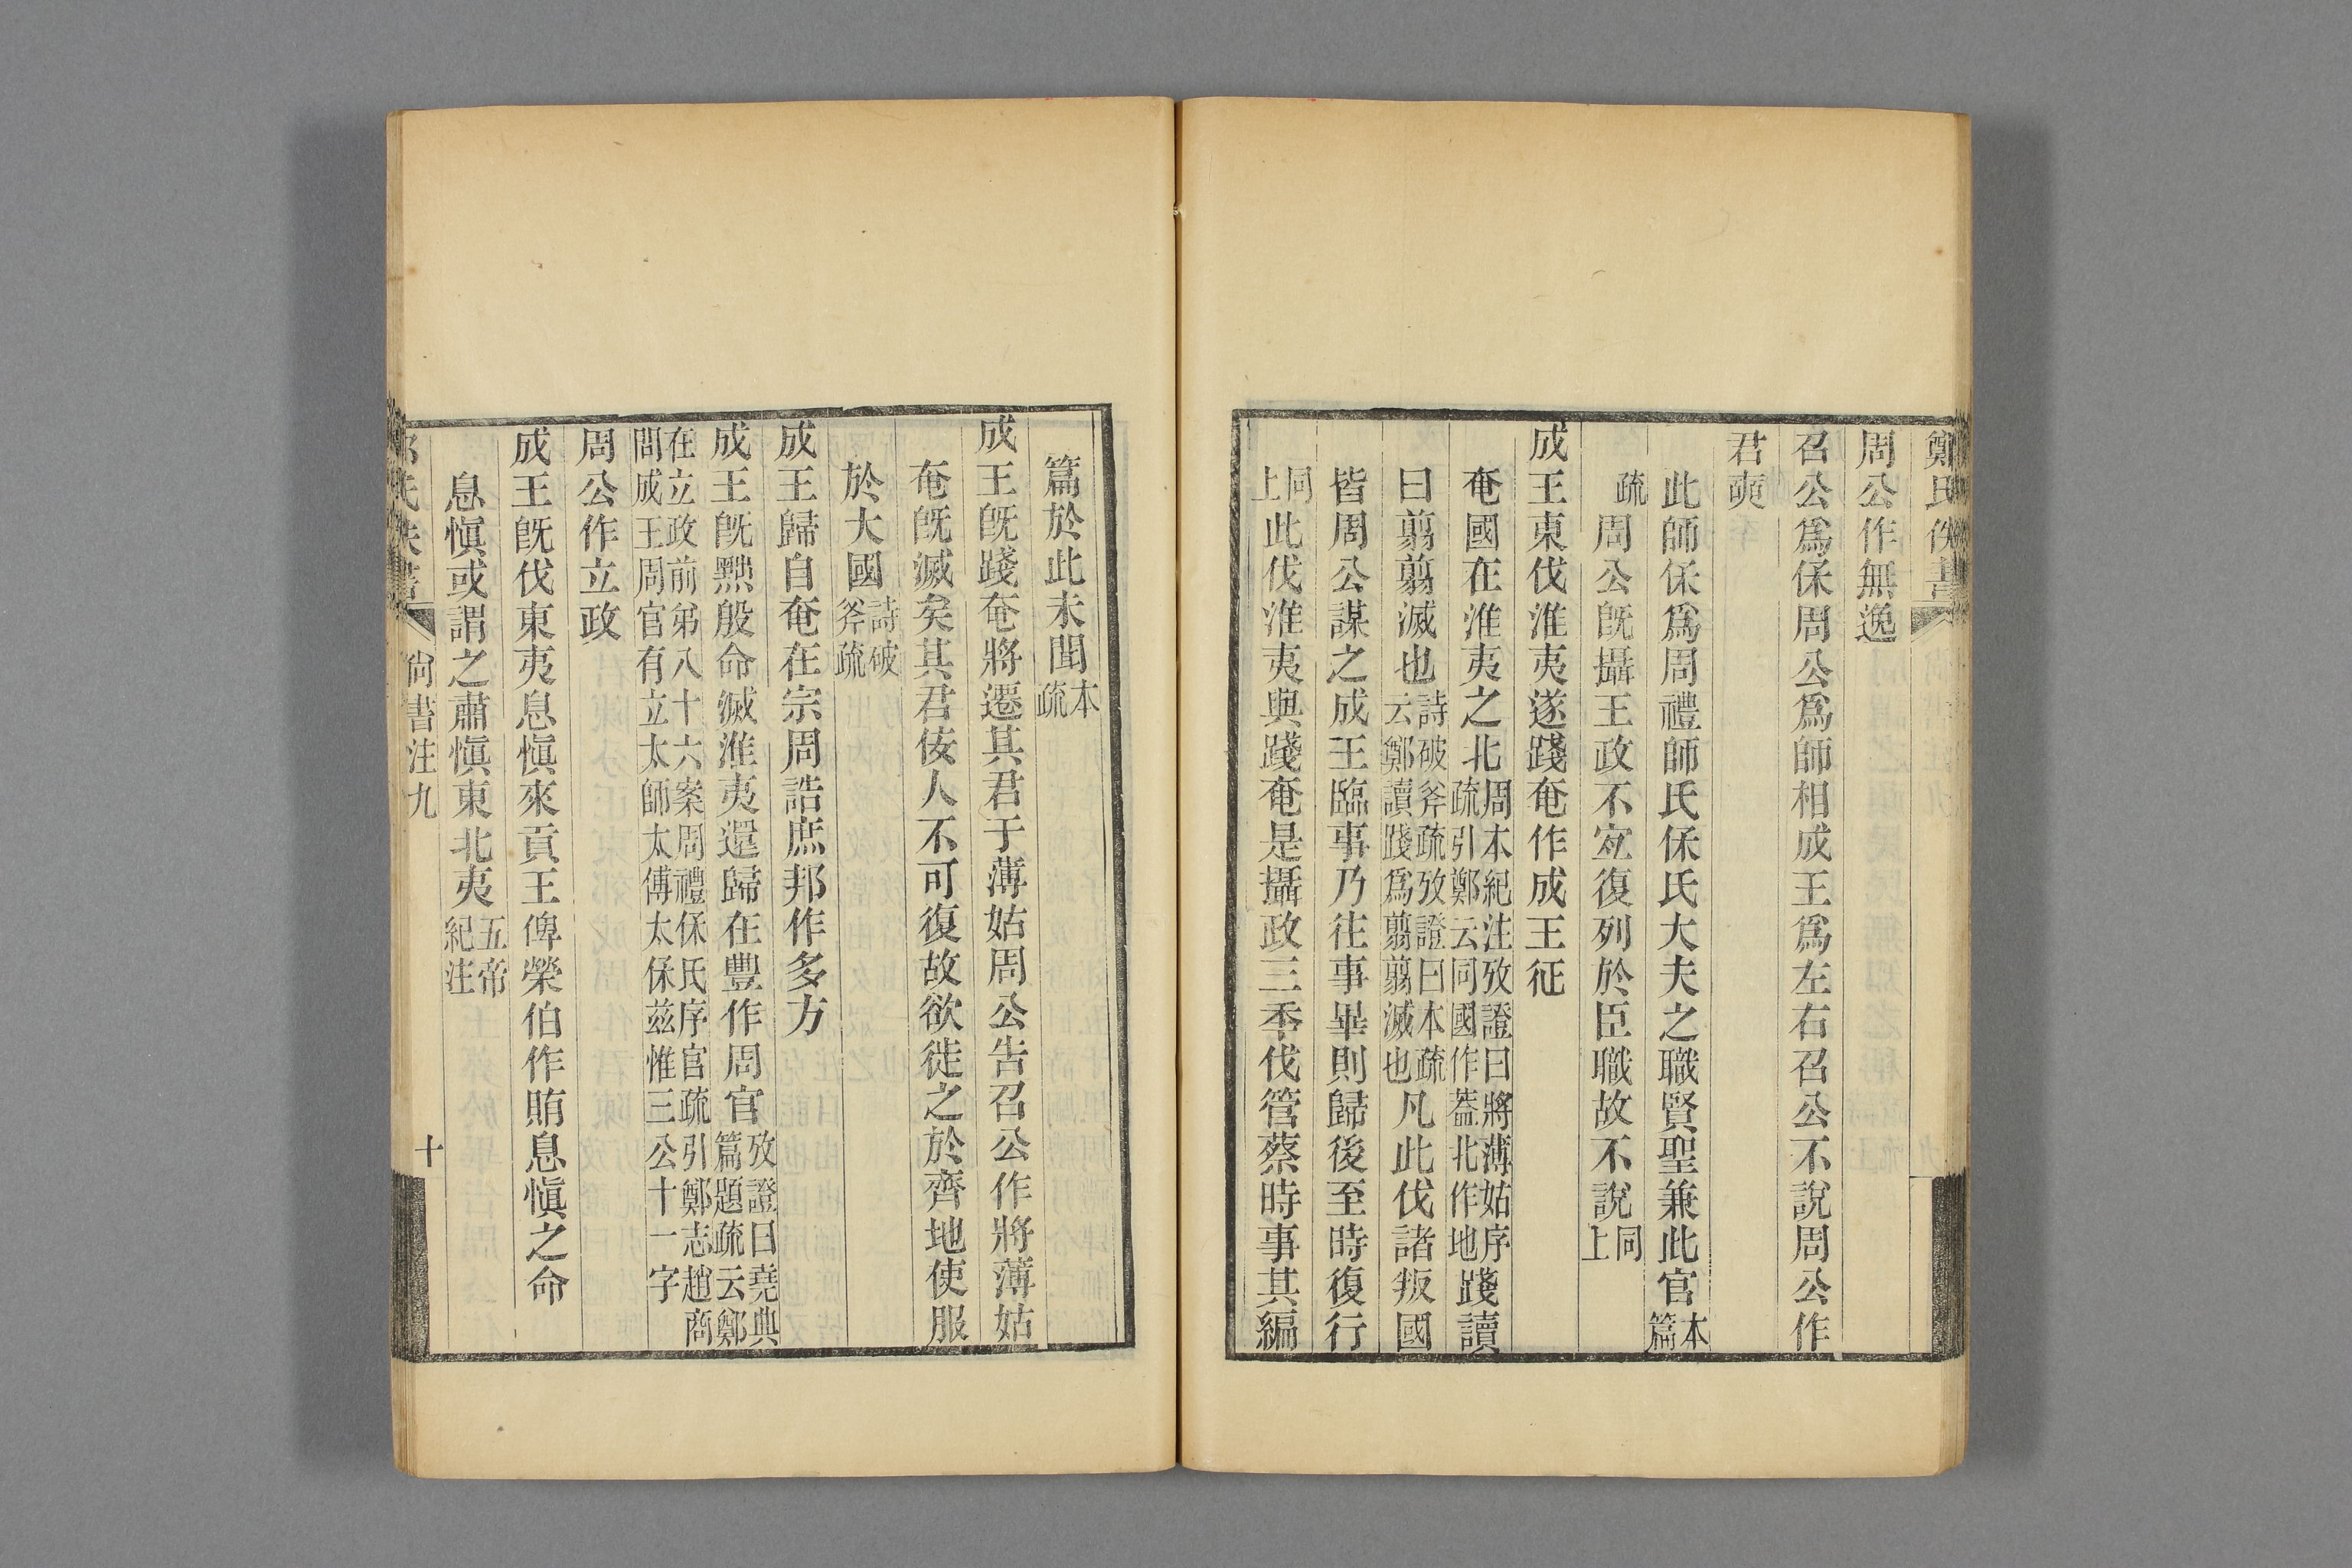 鄭氏佚書
周公作無逸
召公爲保周公爲師相成王爲左右召公不說周公作
君奭
此師保爲周禮師氏保氏大夫之職賢聖兼此官本篇
疏周公旣攝王政不宐復列於臣職故不說同上
成王東伐淮夷遂踐奄作成王征
奄國在淮夷之北周本紀注攷證曰將薄姑序疏引鄭云同國作葢北作地踐讀
曰翦翦滅也詩破斧疏攷證曰本疏云鄭讀踐爲翦翦滅也凡此伐諸叛國
皆周公謀之成王臨事乃往事畢則歸後至時復行
同上此伐淮夷與踐奄是攝政三秊伐管蔡時事其編
篇於此未聞本疏
成王旣踐奄將遷其君于薄姑周公告召公作將薄姑
奄旣滅矣其君佞人不可復故欲徙之於齊地使服
於大國詩破斧疏
成王歸自奄在宗周誥庶邦作多方
成王旣黜殷命滅淮夷還歸在豐作周官攷證曰堯典篇題疏云鄭
在立政前弟八十六案周禮保氏序官疏引鄭志趙商問成王周官有立太師太傅太保茲惟三公十一字
周公作立政
成王旣伐東夷息愼來貢王俾榮伯作賄息愼之命
息愼或謂之肅愼東北夷五帝紀注
尚書注九
十